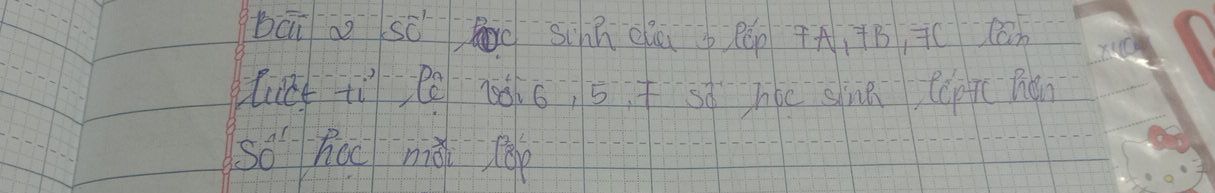 bài 2 số học sinh của 3 lớp 7A, 7B, 7C lần
lượt tỉ lệ với 6, 5, 7 số học sinh lớp 7C hơn
số học mỗi lớp